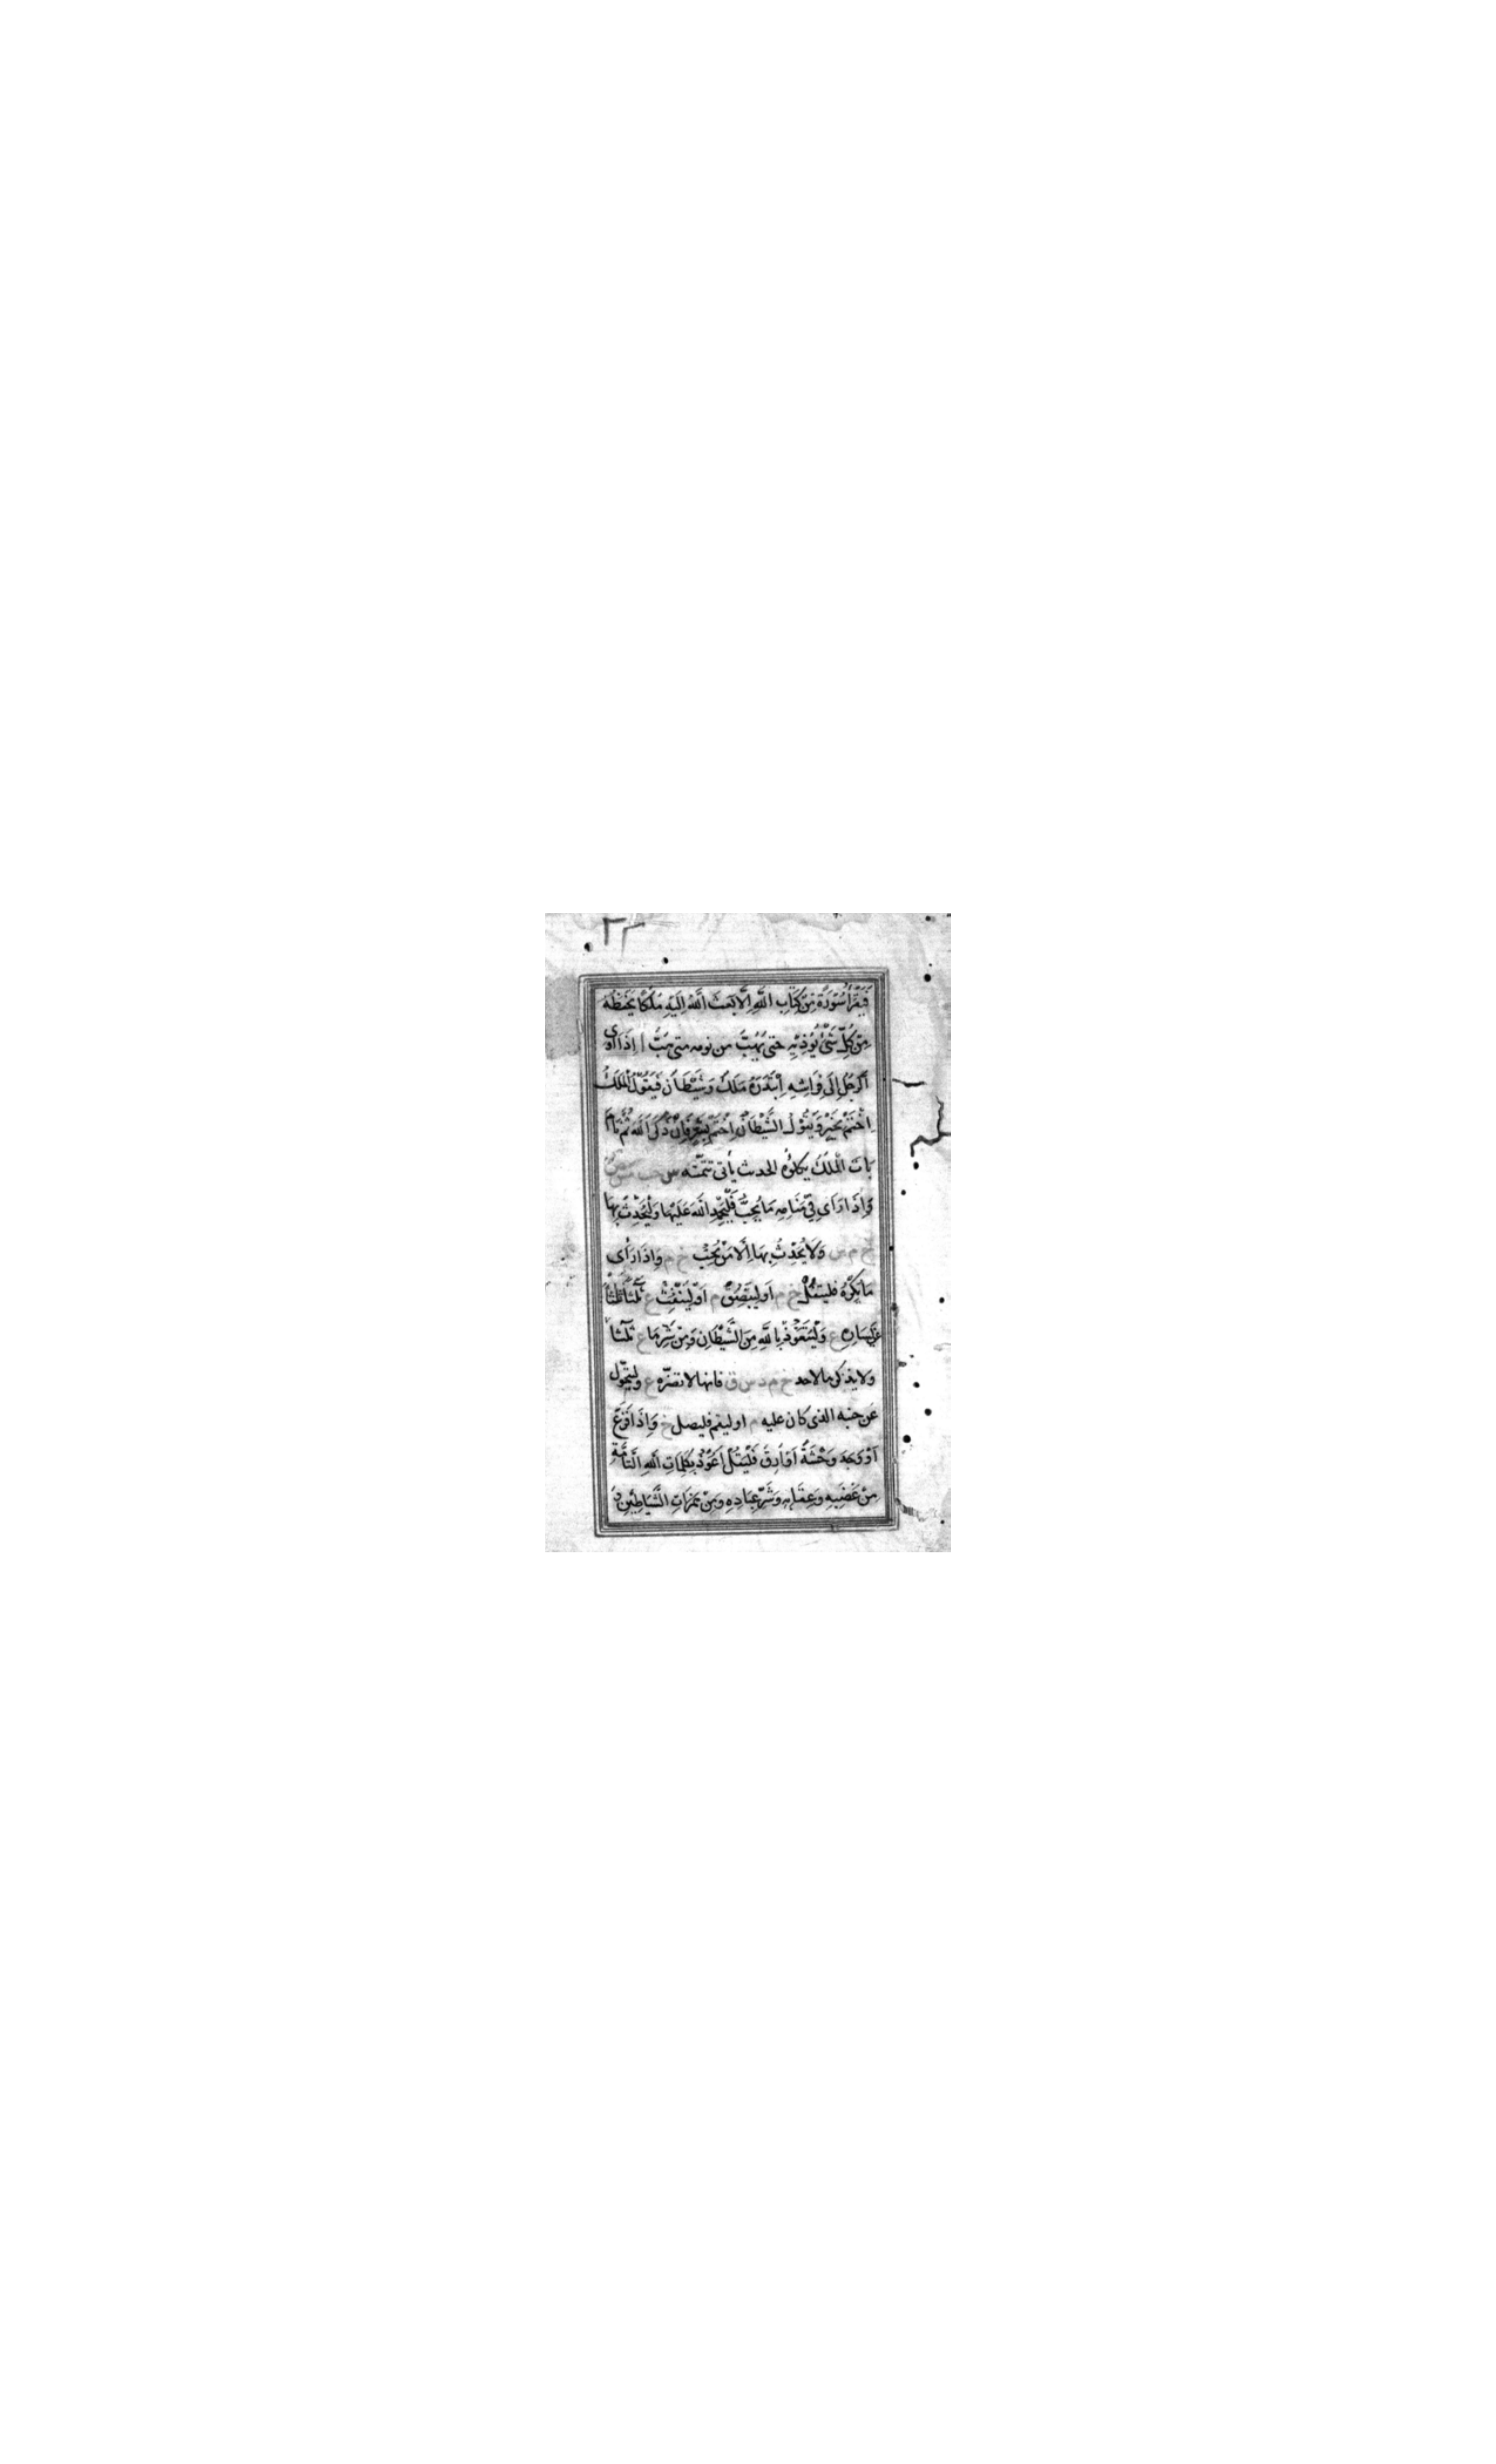 ٢٢
فَيَقْرَأُ سُوْرَةً مِنْ كِتَابِ اللّٰهِ اِلَّا بَعَثَ اللّٰهُ اِلَيْهِ مَلَكًا يَحْفَظُهُ
مِنْ كُلِّ شَيْءٍ يُؤْذِيْهِ حَتّٰى يَهُبَّ من نومه متى هَبَّ ا اِذَا اَوٰى
الرَّجُلُ اِلَى فِرَاشِهِ اِبْتَدَرَهُ مَلَكٌ وَشَيْطَانٌ فَيَقُوْلُ الْمَلَكُ
اِخْتِمْ بِخَيْرٍ وَيَقُوْلُ الشَّيْطَانُ اِخْتِمْ بِشَرٍّ فَاِنْ ذَكَرَ اللّٰهَ ثُمَّ نَامَ
بَاتَ الْمَلَكُ يَكْلَؤُهُ الحديث يأتي تتمته س حب مس
وَاِذَا رَاٰى فِيْ مَنَامِهِ مَا يُحِبُّ فَلْيَحْمَدِ اللّٰهَ عَلَيْهَا وَلْيُحَدِّثْ بِهَا
خ م س وَلَا يُحَدِّثُ بِهَا اِلَّا مَنْ يُحِبُّ خ م وَاِذَا رَاٰى
مَا يَكْرَهُ فليتفُلْ خ م اَوْ لِيَبْصُقْ م اَوْ لِيَنْفِثْ ع ثَلٰثًا
عَنْ يَسَارِهِ ع وَلْيَتَعَوَّذْ بِاللّٰهِ مِنَ الشَّيْطَانِ وَمِنْ شَرِّهَا ع ثَلٰثًا
ولا يذكرها لاحد خ م د س ق فانها لا تضرّه ع وليتحوّل
عَن جنبه الذي كان عليه م او ليقم فليصل خ وَاِذَا فَزِعَ
اَوْ وَجَدَ وَحْشَةً اَوْ اَرِقَ فَلْيَقُلْ اَعُوْذُ بِكَلِمَاتِ اللّٰهِ التَّامَّةِ
مِنْ غَضَبِهِ وَعِقَابِهِ وَشَرِّ عِبَادِهِ وَمِنْ هَمَزَاتِ الشَّيَاطِيْنِ وَ